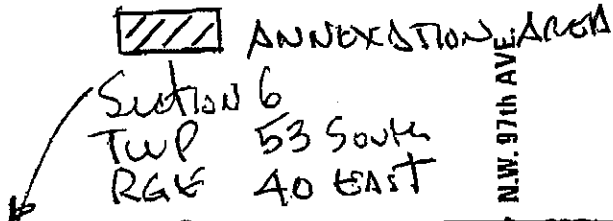 ANNEXATION AREA
Section 6
TWP 53 South
RGE 40 EAST
N.W. 97th AVE.